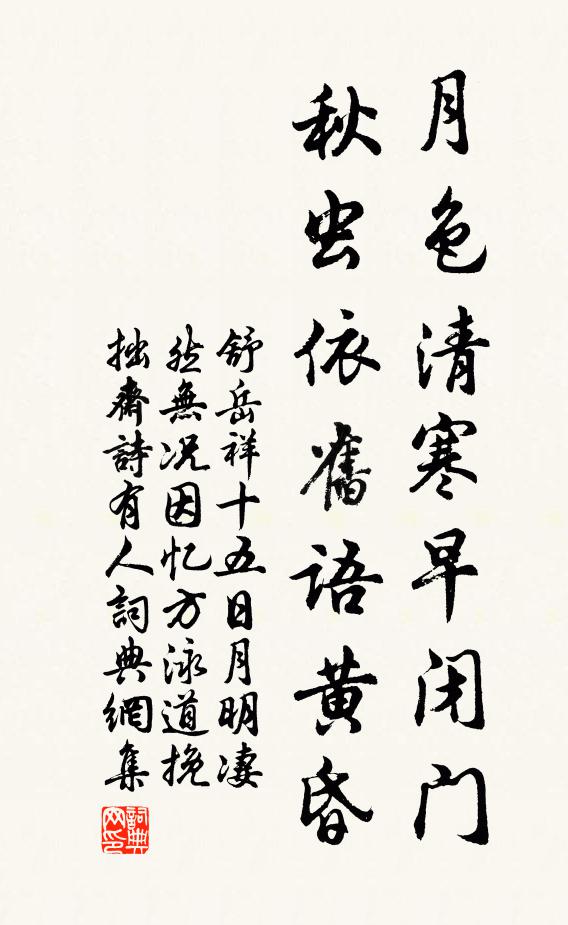 月色清寒早闭门
秋虫依舊語黄昏
舒岳祥十五日月明凄
然無况因忆方泳道挽
拙齋詩有人詞典網集
詞典
网印